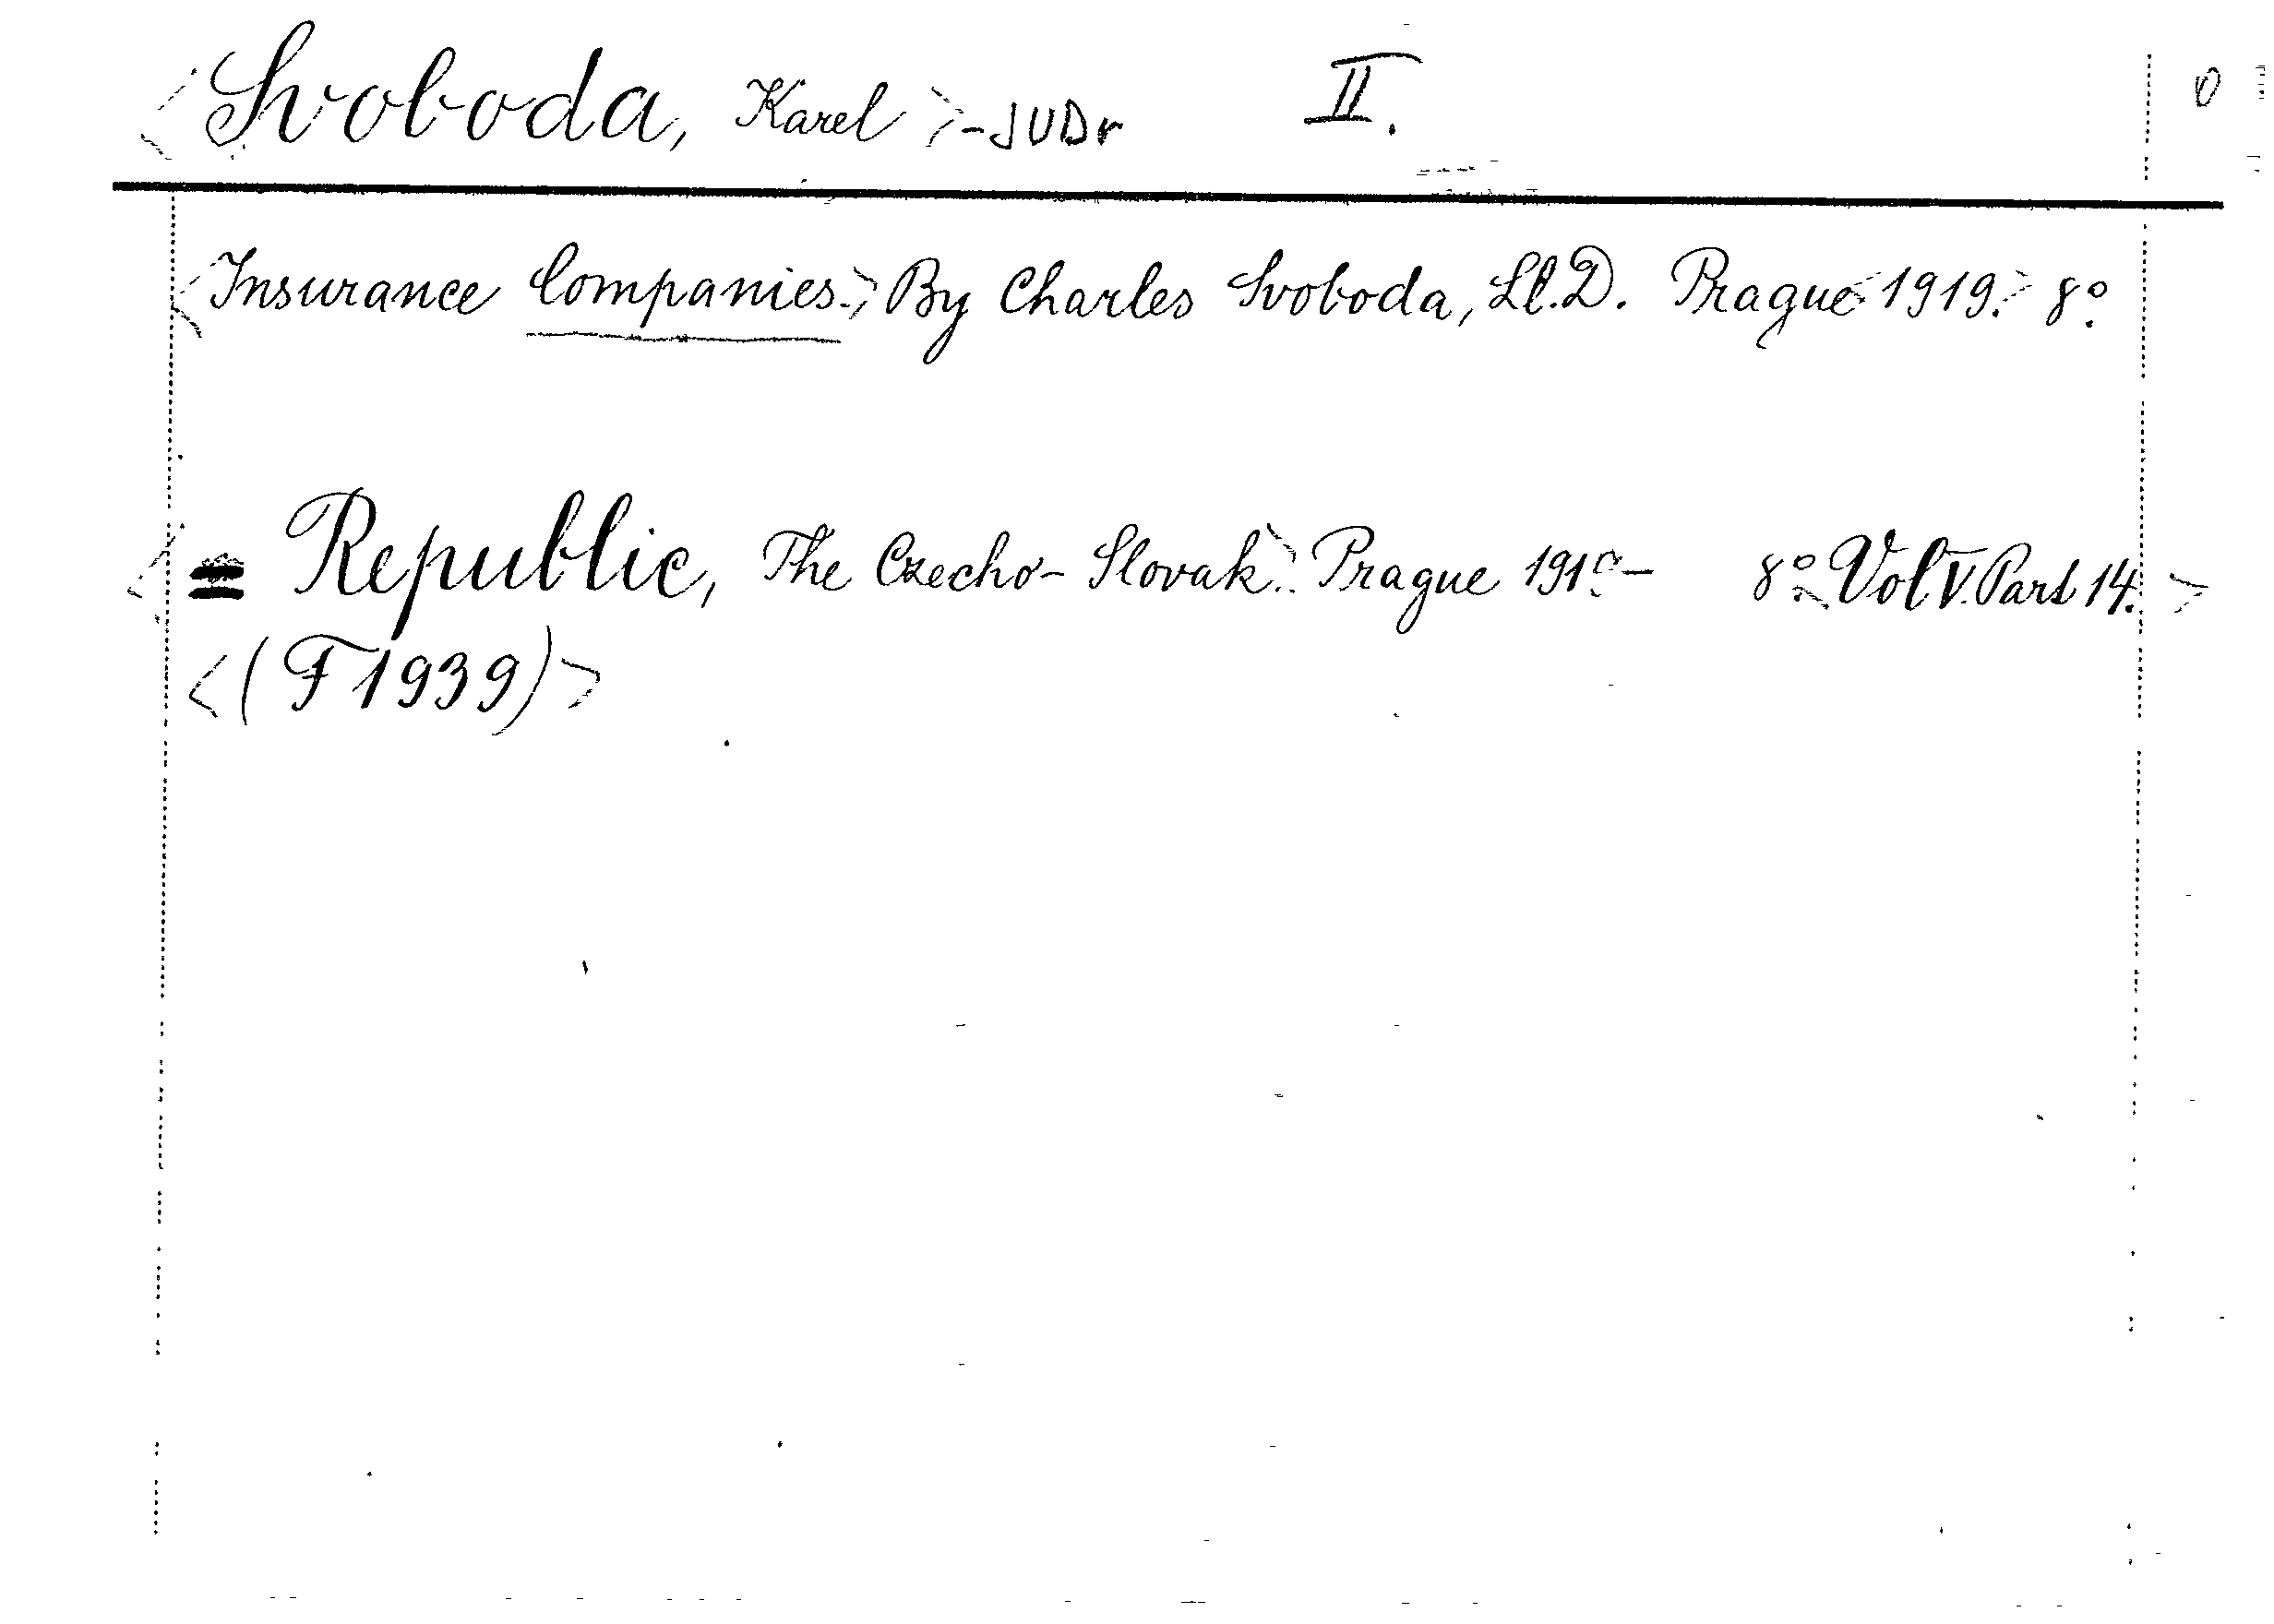 <Svoboda, Karel>-JUDr II. 0
<Insurance Companies.> By Charles Svoboda, Ll.D. Prague <1919.> 8°.
<= Republic, The Czecho-Slovak>. Prague 191 - 8°. <Vol V. Part 14.>
<(F 1939)>